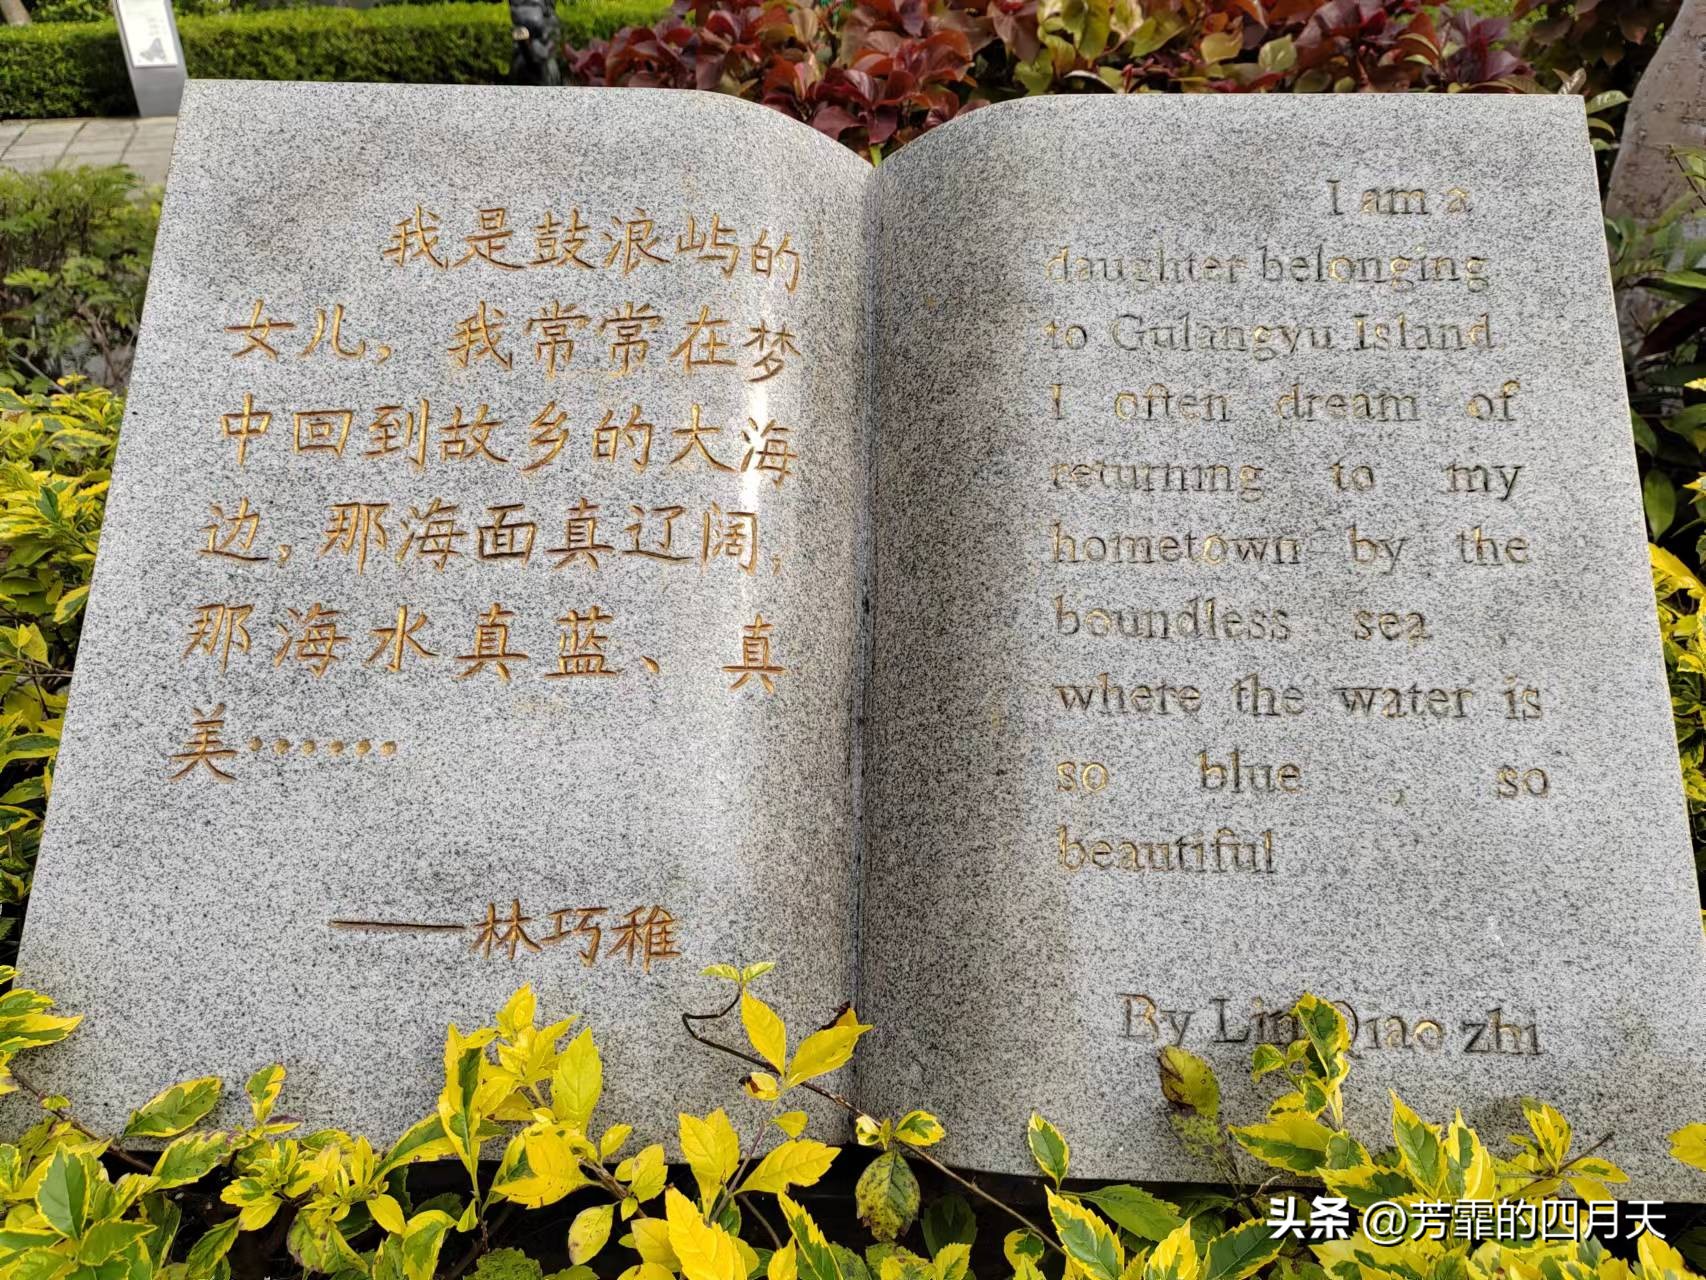 我是鼓浪屿的
女儿，我常常在梦
中回到故乡的大海
边，那海面真辽阔，
那海水真蓝、真
美……
——林巧稚
I am a
daughter belonging
to Gulangyu Island
I often dream of
returning to my
hometown by the
boundless sea ,
where the water is
so blue , so
beautiful
By Lin Qiao zhi
头条 @芳霏的四月天